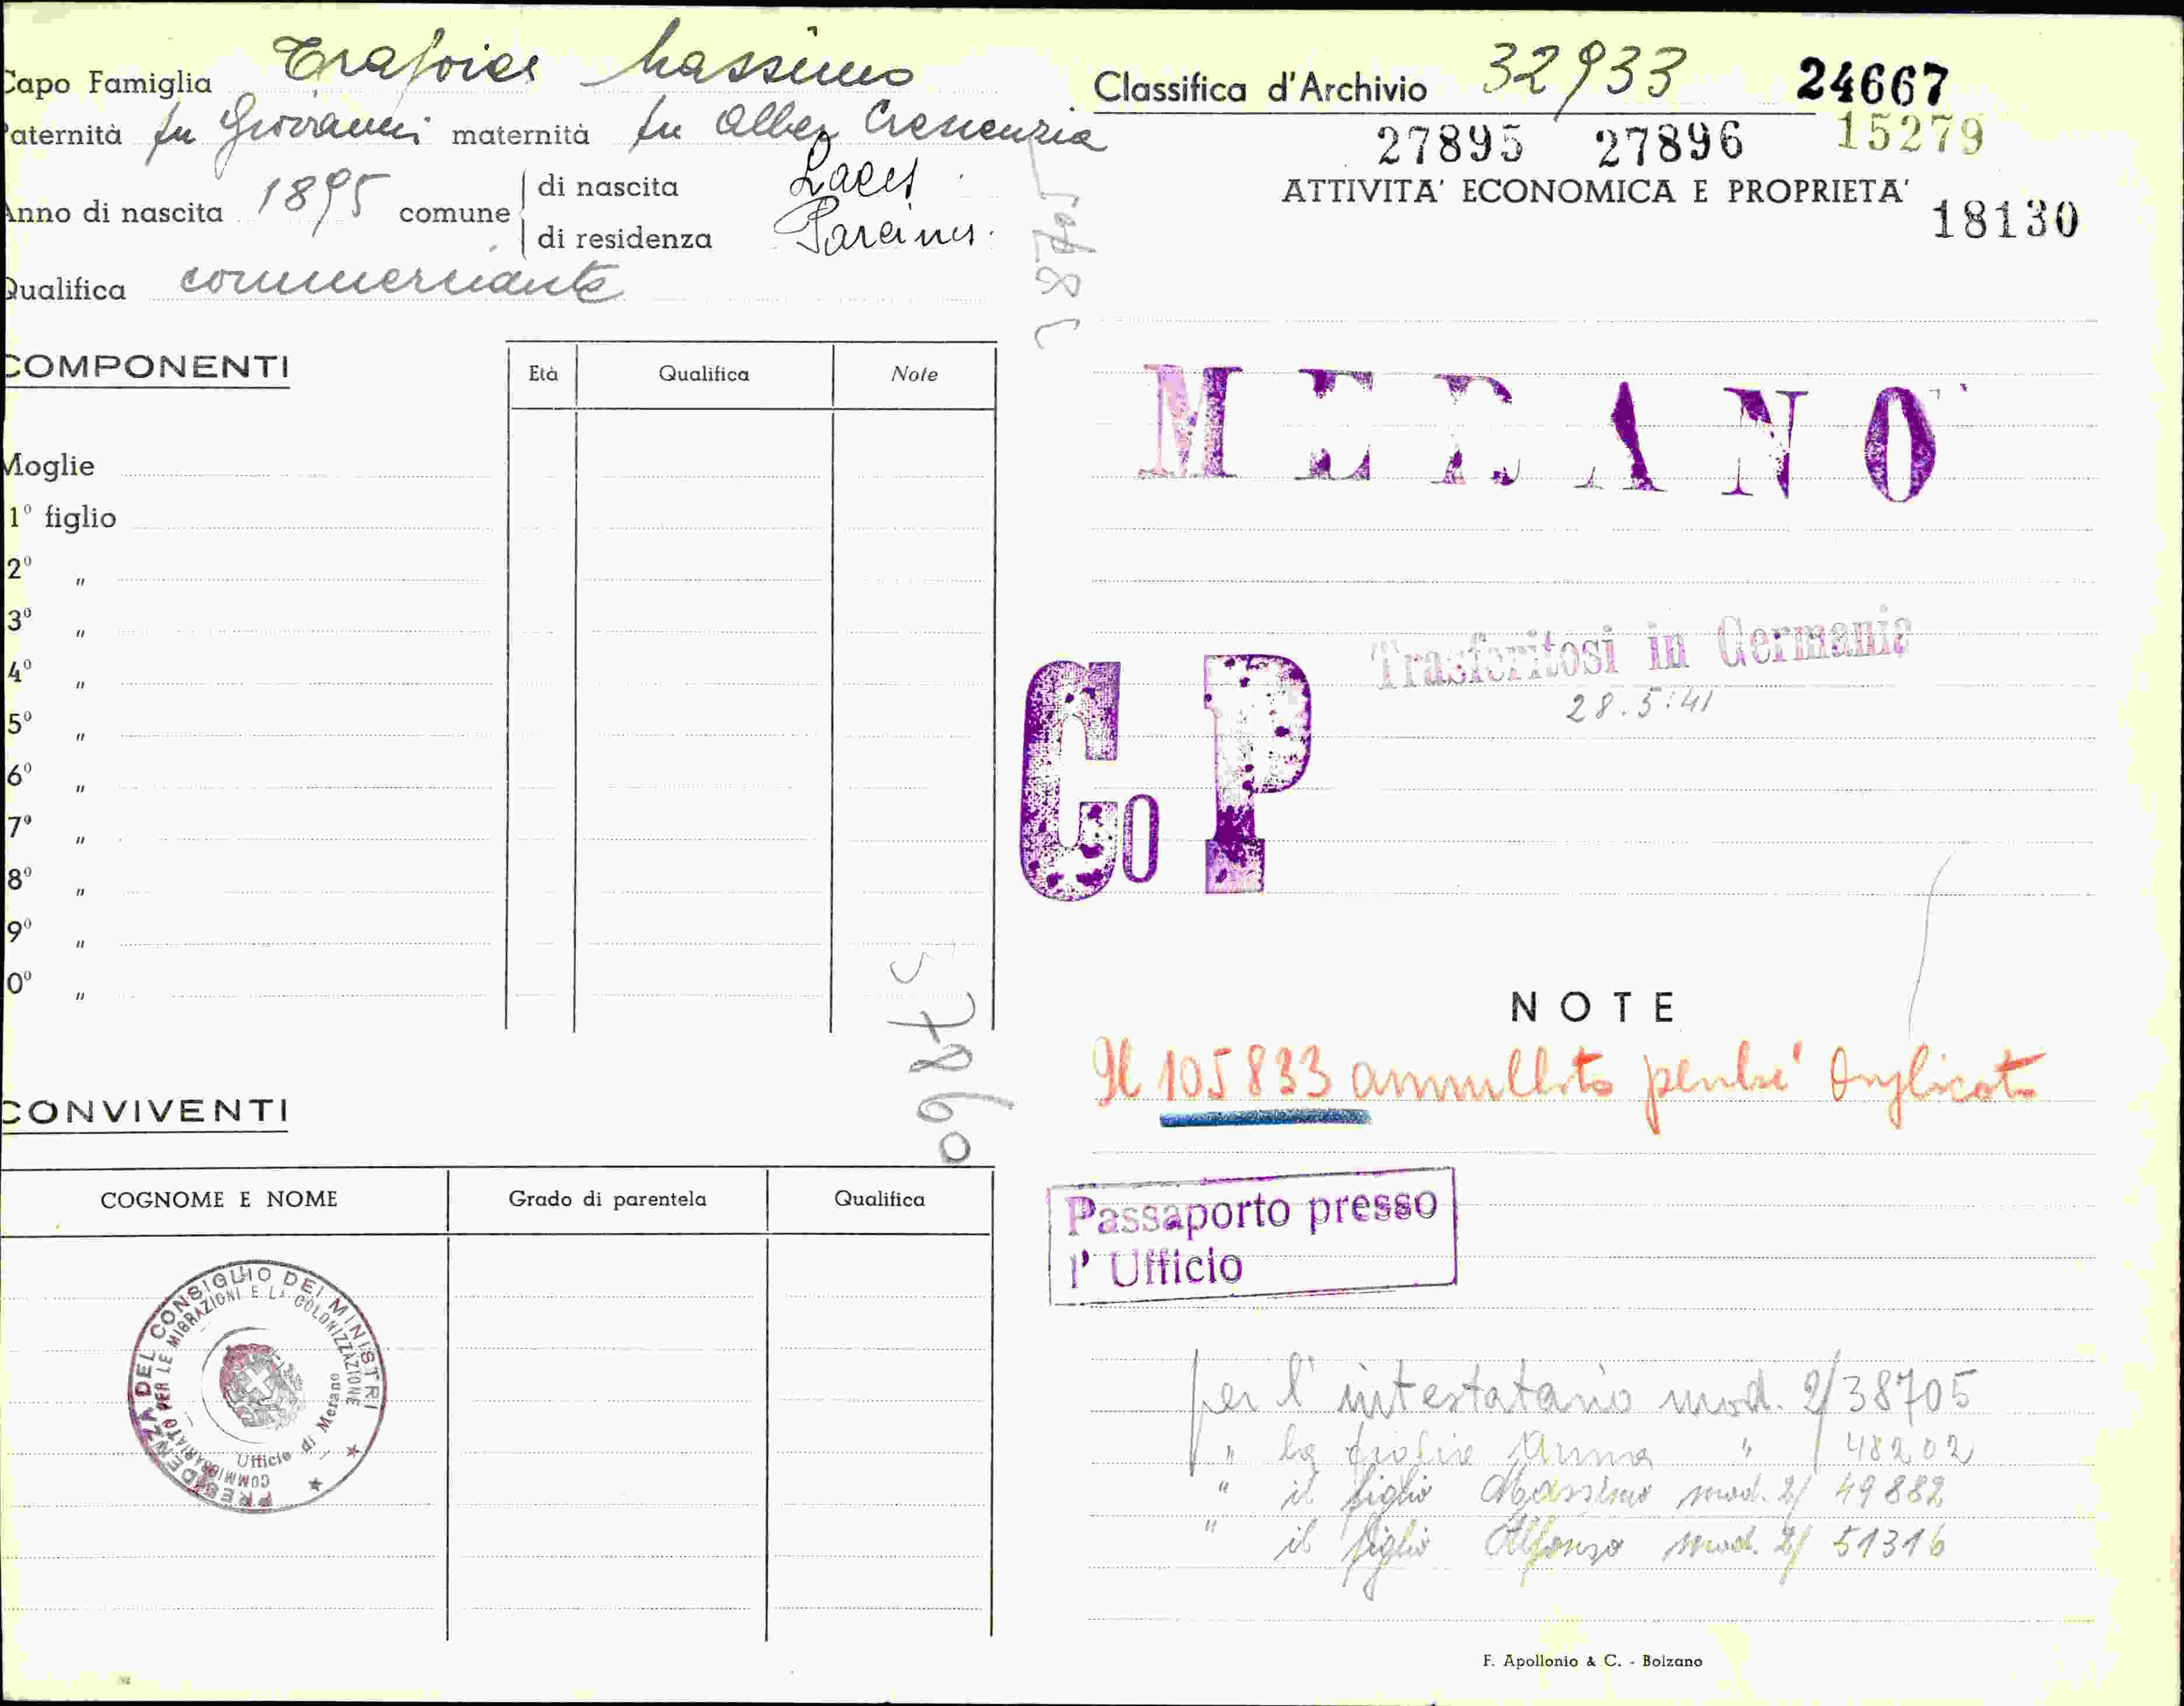 Capo Famiglia Trafoier Massimo
Paternità fu Giovanni maternità fu Alber Crescenzia
Anno di nascita 1895 comune di nascita Laces
di residenza Parcines
Qualifica commerciante
COMPONENTI
Età Qualifica Note
Moglie
1º figlio
2º "
3º "
4º "
5º "
6º "
7º "
8º "
9º "
0º "
CONVIVENTI
COGNOME E NOME Grado di parentela Qualifica
PRESIDENZA DEL CONSIGLIO DEI MINISTRI
COMMISSARIATO PER LE MIGRAZIONI E LA COLONIZZAZIONE
Ufficio di Merano
Classifica d'Archivio 32933 24667
27895 27896 15279
ATTIVITA' ECONOMICA E PROPRIETA'
18130
MERANO
Trasferitosi in Germania
28.5.41
Co P
NOTE
Il 105833 annullato perché duplicato
Passaporto presso
l' Ufficio
per l'intestatario mod. 2/38705
" la figlia Anna " / 48202
" il figlio Massimo mod. 2/ 49882
" il figlio Alfonso mod. 2/ 51316
F. Apollonio & C. - Bolzano